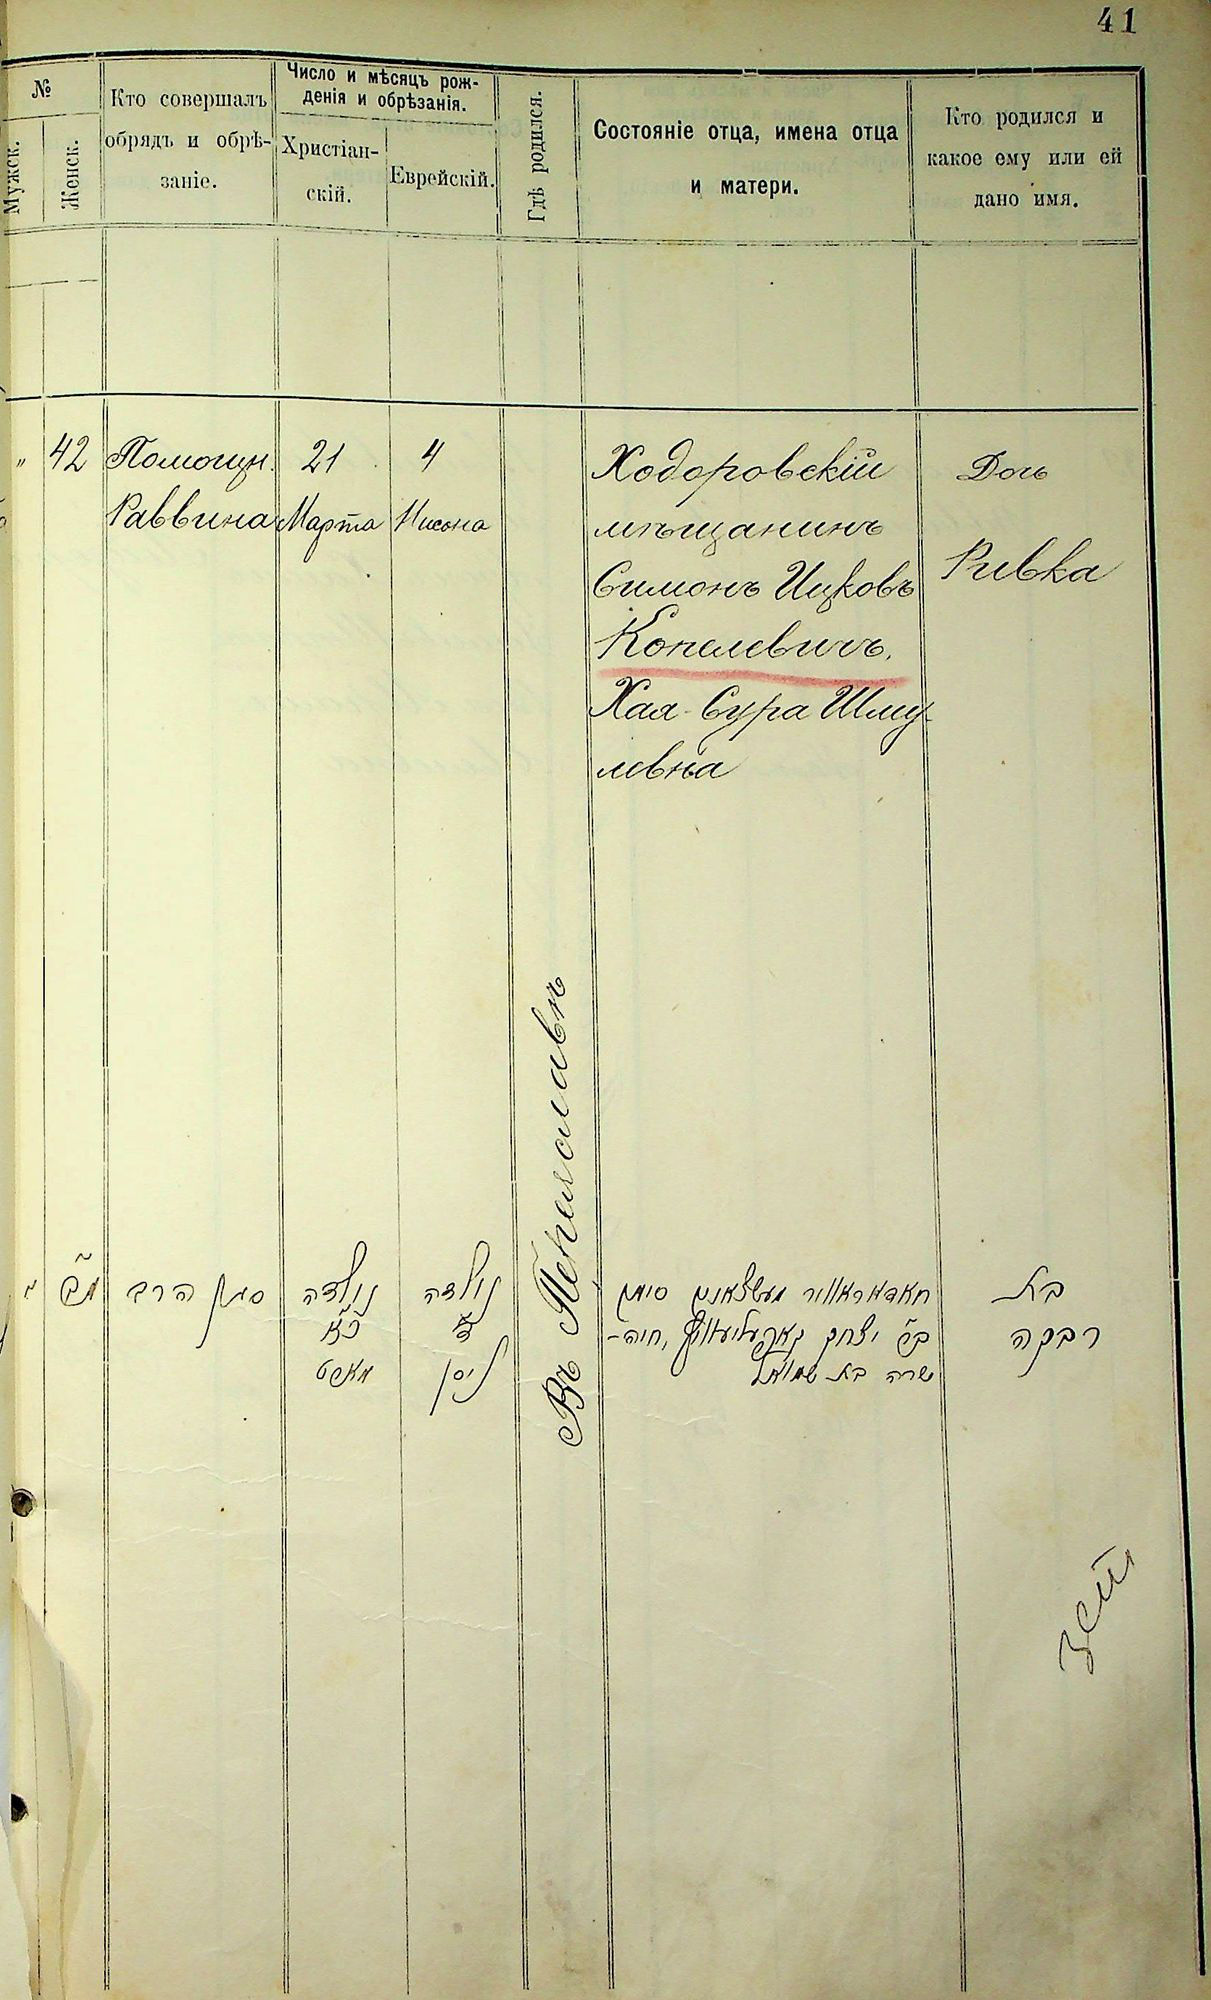 41
№
Мужск.
Женск.
Кто совершалъ
обрядъ и обрѣ-
заніе.
Число и мѣсяцъ рож-
денія и обрѣзанія.
Христіан-
скій.
Еврейскій.
Гдѣ родился.
Состояніе отца, имена отца
и матери.
Кто родился и
какое ему или ей
дано имя.
„ 42
Помощн.
Раввина
21
Марта
4
Нисона
Ходоровскій
мѣщанинъ
Симонъ Ицковъ
Копелевичъ,
Хая-Сура Шму-
левна
Дочь
Ривка
Въ
מב
הרב
נולדה
כא
מארט
נולדה
ד
ניסן
סימן
ב״ר יצחק קאפעליעוויץ, חיה-
שרה בת שמואל
בת
רבקה